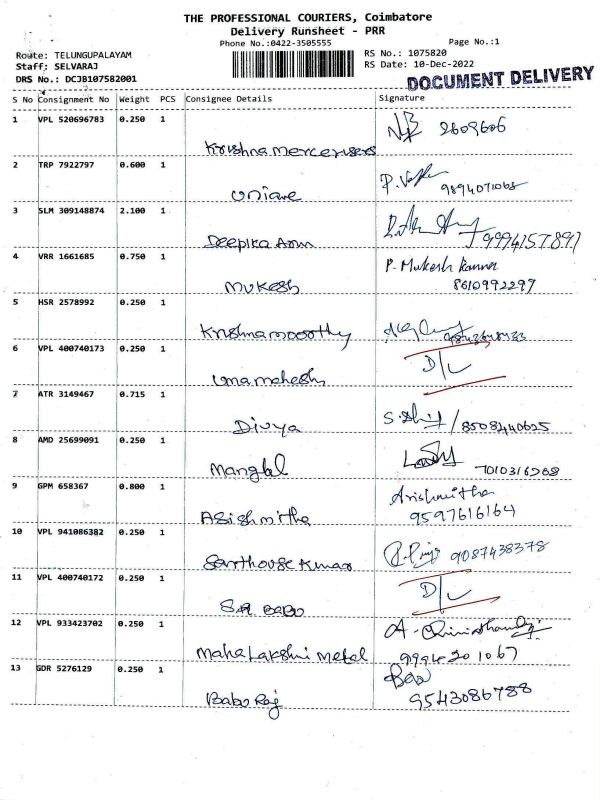 THE PROFESSIONAL COURIERS, Coimbatore
Delivery Runsheet - PRR
Phone No.:0422-3505555
Page No.:1
Route: TELUNGUPALAYAM
RS No.: 1075820
Staff: SELVARAJ
RS Date: 10-Dec-2022
DRS No.: DCJB107582001
DOCUMENT DELIVERY
S No Consignment No Weight PCS Consignee Details Signature
1 VPL 520696783 0.250 1
Krishna mercerisers 2609606
2 TRP 7922797 0.600 1
Unique 9894071068
3 SLM 309148874 2.100 1
Deepika Arun
4 VRR 1661685 0.750 1 P. Mukesh Kannan
Mukesh 8610992297
5 HSR 2578992 0.250 1
Krishnamoorthy
6 VPL 400740173 0.250 1 D/L
Uma mahesh
7 ATR 3149467 0.715 1
Divya 8508440625
8 AMD 25699091 0.250 1
Mangal
9 GPM 658367 0.800 1
Asishmitha 9597616164
10 VPL 941086382 0.250 1
9087438378
11 VPL 400740172 0.250 1 D/L
S.R. Babu
12 VPL 933423702 0.250 1
Maha Lakshmi Metal 9994201067
13 GDR 5276129 0.250 1
Babu Raj 9543086788